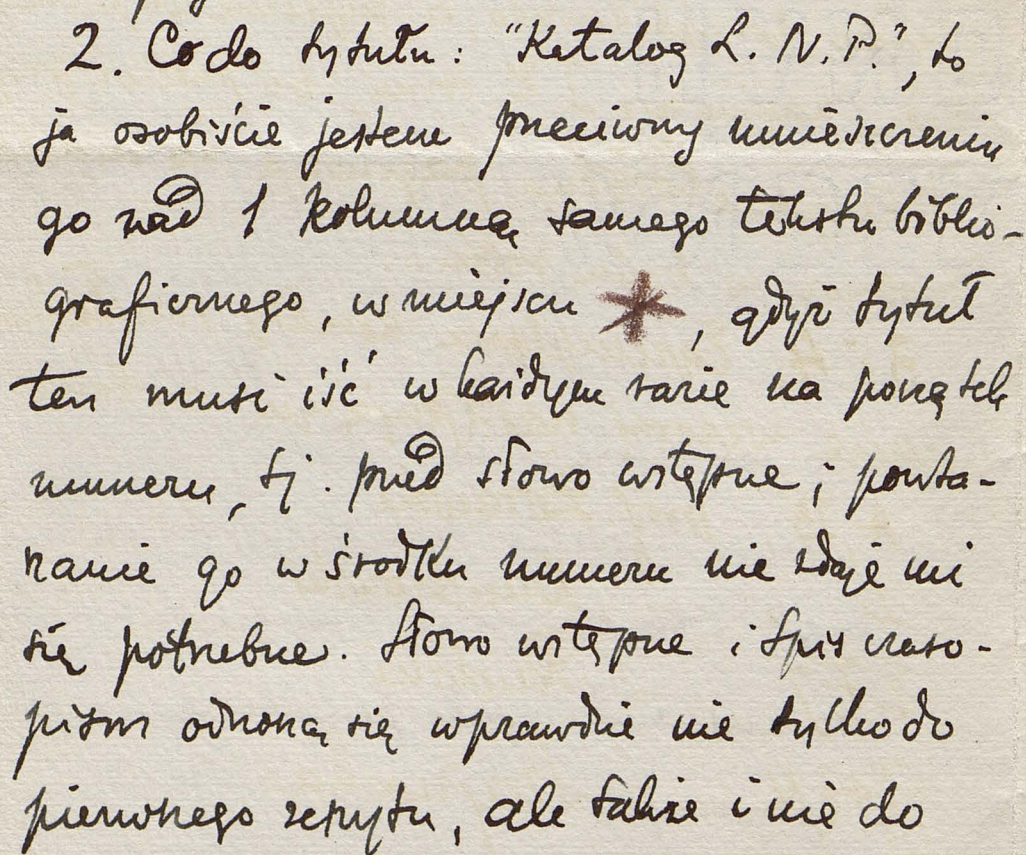 2. Co do tytułu: "Katalog L. N. P.", to
ja osobiście jestem przeciwny umieszczeniu
go nad 1 kolumną samego tekstu biblio-
graficznego, w miejscu *, gdyż tytuł
ten musi iść w każdym razie na początek
numeru, tj. przed słowo wstępne; powta-
rzanie go w środku numeru nie zdaje mi
się potrzebne. Słowo wstępne i Spis czaso-
pism odnoszą się wprawdzie nie tylko do
pierwszego zeszytu, ale także i nie do